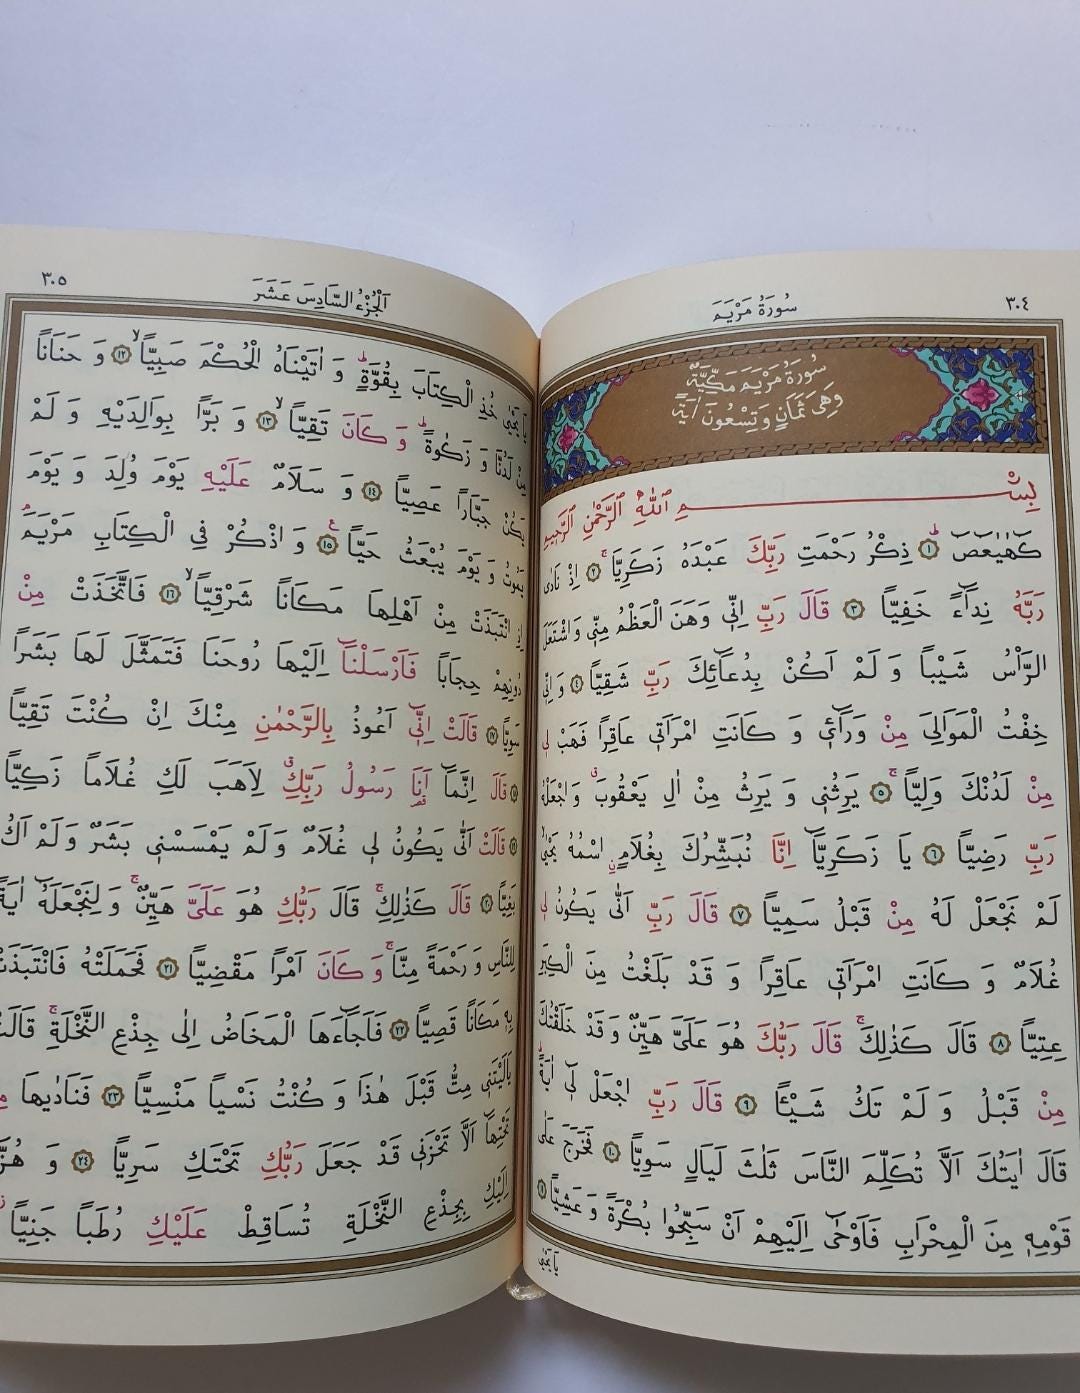 ٣٠٤
سُورَةُ مَرْيَمَ
سُورَةُ مَرْيَمَ مَكِّيَّةٌ
وَهِيَ ثَمَانٍ وَتِسْعُونَ اٰيَةً
بِسْــــــــمِ اللّٰهِ الرَّحْمٰنِ الرَّحٖيمِ
كٓهٰيٰعٓصٓ ۜ ﴿١﴾ ذِكْرُ رَحْمَتِ رَبِّكَ عَبْدَهُ زَكَرِيَّا ۚ ﴿٢﴾ اِذْ نَادٰى
رَبَّهُ نِدَٓاءً خَفِيًّا ﴿٣﴾ قَالَ رَبِّ اِنّٖي وَهَنَ الْعَظْمُ مِنّٖي وَاشْتَعَلَ
الرَّأْسُ شَيْبًا وَ لَمْ اَكُنْ بِدُعَٓائِكَ رَبِّ شَقِيًّا ﴿٤﴾ وَ اِنّٖي
خِفْتُ الْمَوَالِيَ مِنْ وَرَٓائٖي وَ كَانَتِ امْرَاَتٖي عَاقِرًا فَهَبْ لٖي
مِنْ لَدُنْكَ وَلِيًّا ۙ ﴿٥﴾ يَرِثُنٖي وَ يَرِثُ مِنْ اٰلِ يَعْقُوبَ ۗ وَاجْعَلْهُ
رَبِّ رَضِيًّا ﴿٦﴾ يَا زَكَرِيَّٓا اِنَّا نُبَشِّرُكَ بِغُلَامٍ اسْمُهُ يَحْيٰى ۙ
لَمْ نَجْعَلْ لَهُ مِنْ قَبْلُ سَمِيًّا ﴿٧﴾ قَالَ رَبِّ اَنّٰى يَكُونُ لٖي
غُلَامٌ وَ كَانَتِ امْرَاَتٖي عَاقِرًا وَ قَدْ بَلَغْتُ مِنَ الْكِبَرِ
عِتِيًّا ﴿٨﴾ قَالَ كَذٰلِكَ ۚ قَالَ رَبُّكَ هُوَ عَلَيَّ هَيِّنٌ وَ قَدْ خَلَقْتُكَ
مِنْ قَبْلُ وَ لَمْ تَكُ شَيْـًٔا ﴿٩﴾ قَالَ رَبِّ اجْعَلْ لٖٓي اٰيَةً ۜ
قَالَ اٰيَتُكَ اَلَّا تُكَلِّمَ النَّاسَ ثَلٰثَ لَيَالٍ سَوِيًّا ﴿١٠﴾ فَخَرَجَ عَلٰى
قَوْمِهٖ مِنَ الْمِحْرَابِ فَاَوْحٰٓى اِلَيْهِمْ اَنْ سَبِّحُوا بُكْرَةً وَ عَشِيًّا ﴿١١﴾
يَا يَحْيٰى
٣٠٥
اَلْجُزْءُ السَّادِسَ عَشَرَ
يَا يَحْيٰى خُذِ الْكِتَابَ بِقُوَّةٍ ۜ وَ اٰتَيْنَاهُ الْحُكْمَ صَبِيًّا ۙ ﴿١٢﴾ وَ حَنَانًا
مِنْ لَدُنَّا وَ زَكٰوةً ۜ وَ كَانَ تَقِيًّا ۙ ﴿١٣﴾ وَ بَرًّا بِوَالِدَيْهِ وَ لَمْ
يَكُنْ جَبَّارًا عَصِيًّا ﴿١٤﴾ وَ سَلَامٌ عَلَيْهِ يَوْمَ وُلِدَ وَ يَوْمَ
يَمُوتُ وَ يَوْمَ يُبْعَثُ حَيًّا ﴿١٥﴾ وَ اذْكُرْ فِي الْكِتَابِ مَرْيَمَ ۢ
اِذِ انْتَبَذَتْ مِنْ اَهْلِهَا مَكَانًا شَرْقِيًّا ۙ ﴿١٦﴾ فَاتَّخَذَتْ مِنْ
دُونِهِمْ حِجَابًا فَاَرْسَلْنَٓا اِلَيْهَا رُوحَنَا فَتَمَثَّلَ لَهَا بَشَرًا
سَوِيًّا ﴿١٧﴾ قَالَتْ اِنّٖٓي اَعُوذُ بِالرَّحْمٰنِ مِنْكَ اِنْ كُنْتَ تَقِيًّا
﴿١٨﴾ قَالَ اِنَّمَٓا اَنَا رَسُولُ رَبِّكِ ۗ لِاَهَبَ لَكِ غُلَامًا زَكِيًّا
﴿١٩﴾ قَالَتْ اَنّٰى يَكُونُ لٖي غُلَامٌ وَ لَمْ يَمْسَسْنٖي بَشَرٌ وَ لَمْ اَكُ
بَغِيًّا ﴿٢٠﴾ قَالَ كَذٰلِكِ ۚ قَالَ رَبُّكِ هُوَ عَلَيَّ هَيِّنٌ ۚ وَ لِنَجْعَلَهُٓ اٰيَةً
لِلنَّاسِ وَ رَحْمَةً مِنَّا ۚ وَ كَانَ اَمْرًا مَقْضِيًّا ﴿٢١﴾ فَحَمَلَتْهُ فَانْتَبَذَتْ
بِهٖ مَكَانًا قَصِيًّا ﴿٢٢﴾ فَاَجَٓاءَهَا الْمَخَاضُ اِلٰى جِذْعِ النَّخْلَةِ ۚ قَالَتْ
يَا لَيْتَنٖي مِتُّ قَبْلَ هٰذَا وَ كُنْتُ نَسْيًا مَنْسِيًّا ﴿٢٣﴾ فَنَادٰيهَا
تَحْتِهَٓا اَلَّا تَحْزَنٖي قَدْ جَعَلَ رَبُّكِ تَحْتَكِ سَرِيًّا ﴿٢٤﴾ وَ هُزّٖي
اِلَيْكِ بِجِذْعِ النَّخْلَةِ تُسَاقِطْ عَلَيْكِ رُطَبًا جَنِيًّا